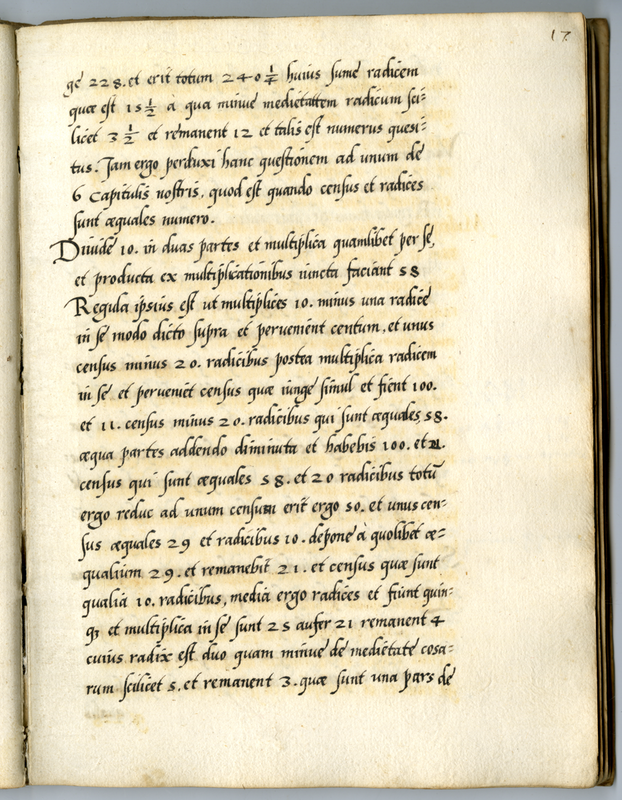 17
gē 228. et erit totum 240 1/4 huius sume radicem
quæ est 15 1/2 à qua minue medietattem radicum sci=
licet 3 1/2 et remanent 12 et talis est numerus quesi=
tus. Jam ergo perduxi hanc questionem ad unum de
6 Capitulis nostris. quod est quando census et radices
sunt æquales numero.
Diuide 10. in duas partes et multiplica quamlibet per se,
et producta ex multiplicationibus iuncta faciant 58
Regula ipsius est ut multiplices 10. minus una radicē
in se modo dicto supra et pervenient centum, et unus
census minus 20. radicibus postea multiplica radicem
in se et perveniet census quæ iunge simul et fient 100.
et 11. census minus 20. radicibus qui sunt æquales 58.
æqua partes addendo diminuta et habebis 100. et
census qui sunt æquales 58. et 20 radicibus totū
ergo reduc ad unum censum erit ergo 50. et unus cen-
sus æquales 29 et radicibus 10. depone à quolibet æ=
qualium 29. et remanebit 21. et census quæ sunt
qualia 10. radicibus, media ergo radices et fiunt quin-
q3 et multiplica in se sunt 25 aufer 21 remanent 4
cuius radix est duo quam minue de medietate cosa=
rum scilicet 5. et remanent 3. quæ sunt una pars de